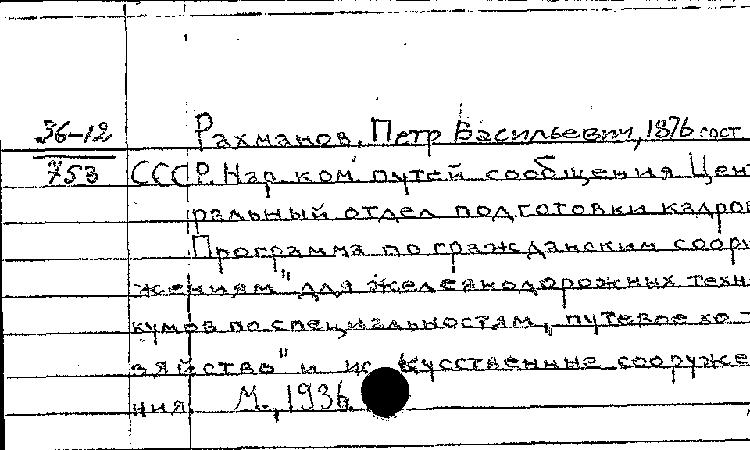 36-12
753
Рахманов, Петр Васильевич, 1876 сост.
СССР. Нар. ком. путей сообщения Цент
ральный отдел подготовки кадров
Программа по гражданским соору
жениям" для железнодорожных техни
кумов по специальностям, путевое хо-
зяйство" и искусственные сооруже
ния. М., 1936.